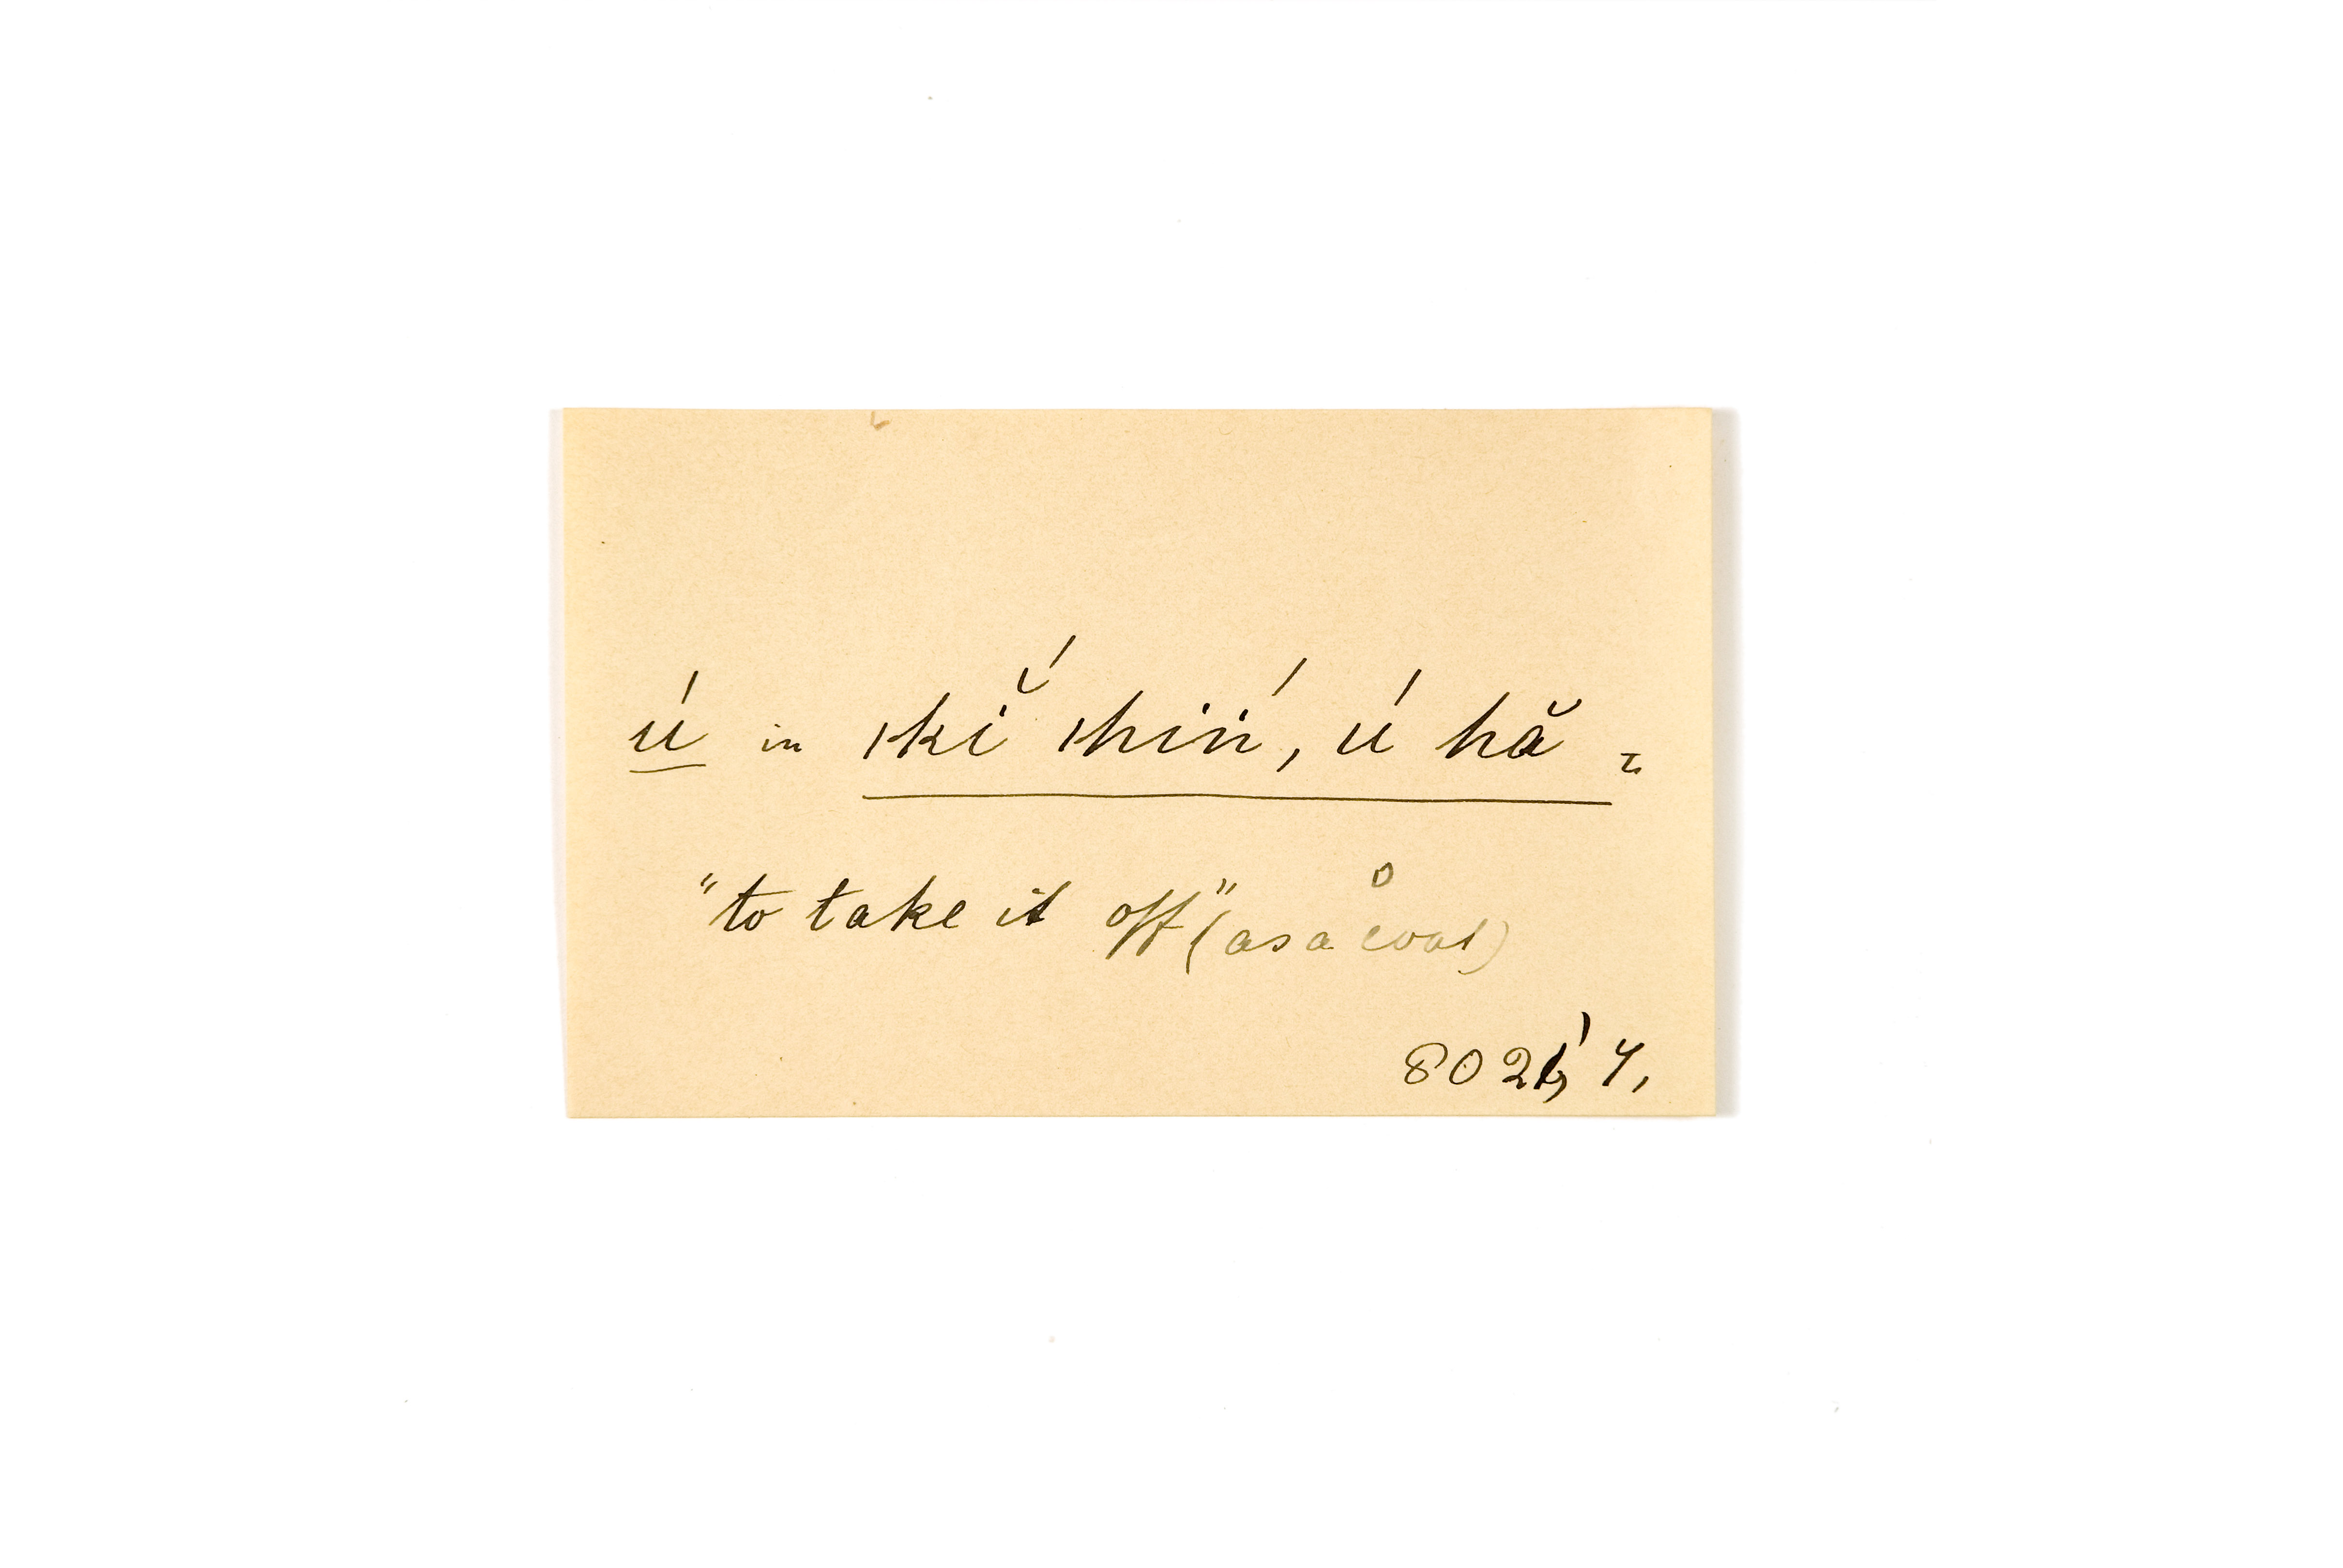 ú in ski̇̆́ shiṅ́, ú hă =
"to take it off" (as a coat)
8025, 4,